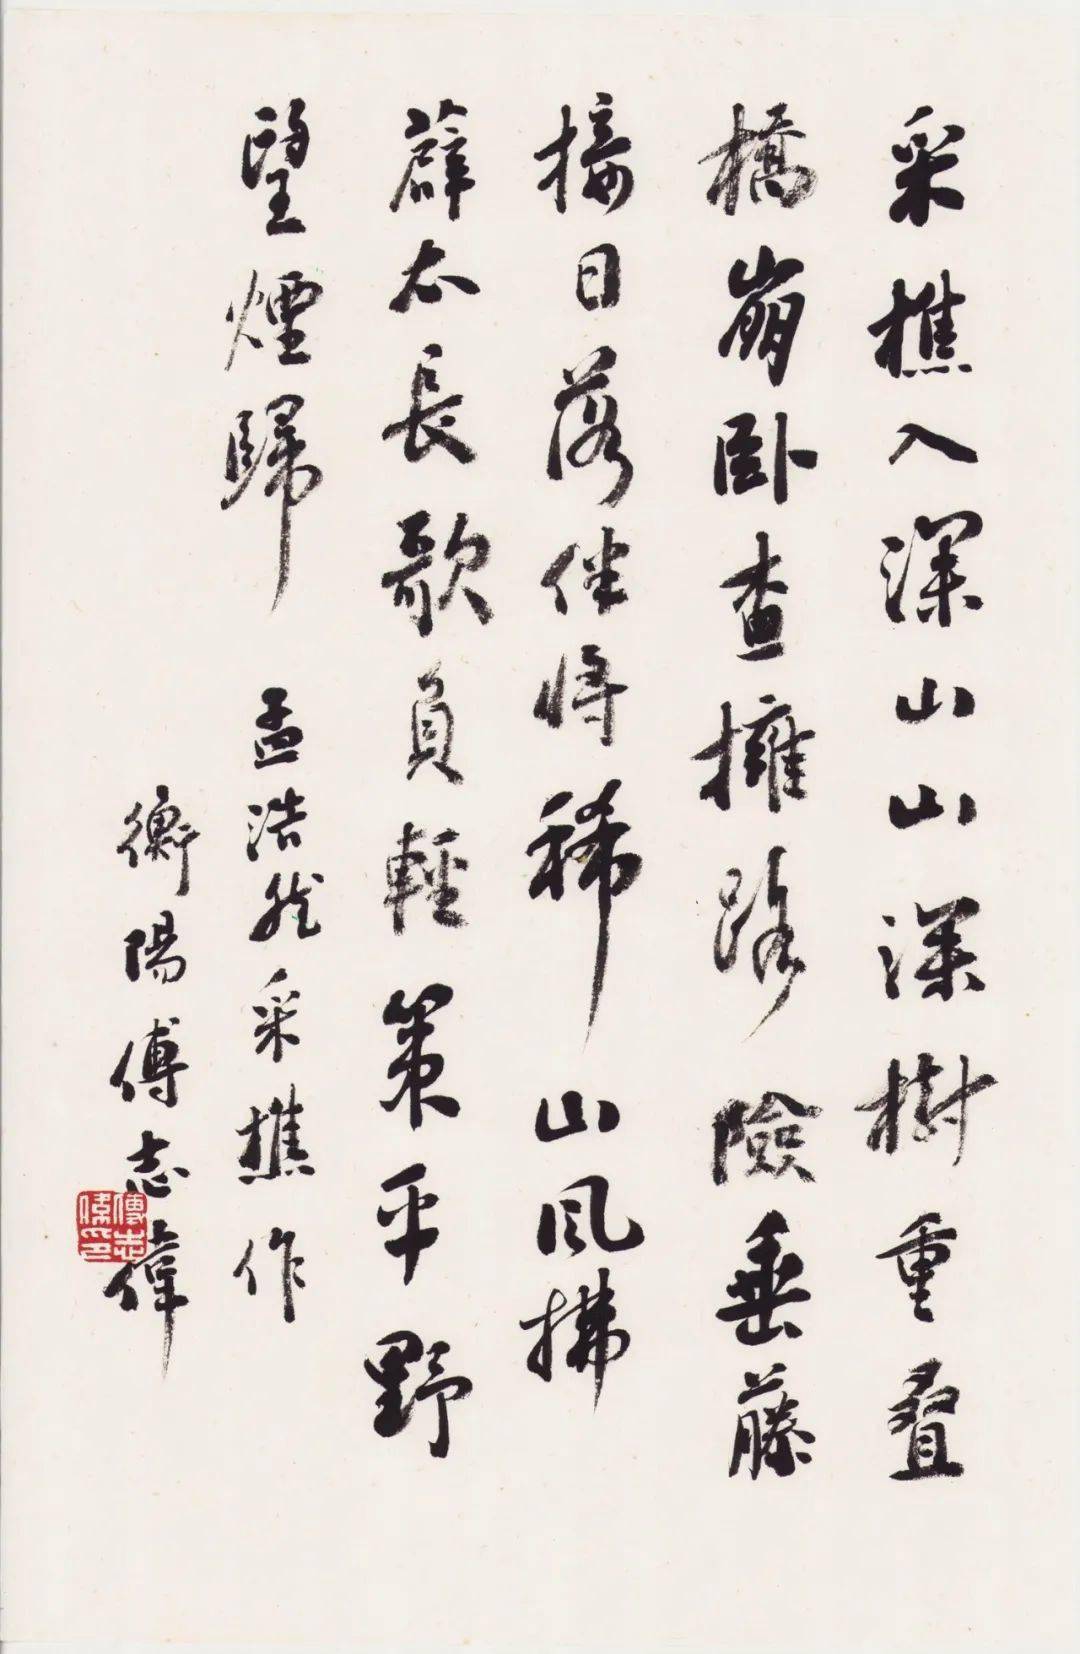 采樵入深山山深樹重叠
橋崩卧查擁路險垂藤
接日落伴将稀山風拂
薜衣長歌負輕策平野
望煙歸
孟浩然采樵作
衡陽傅志偉
傅志偉印